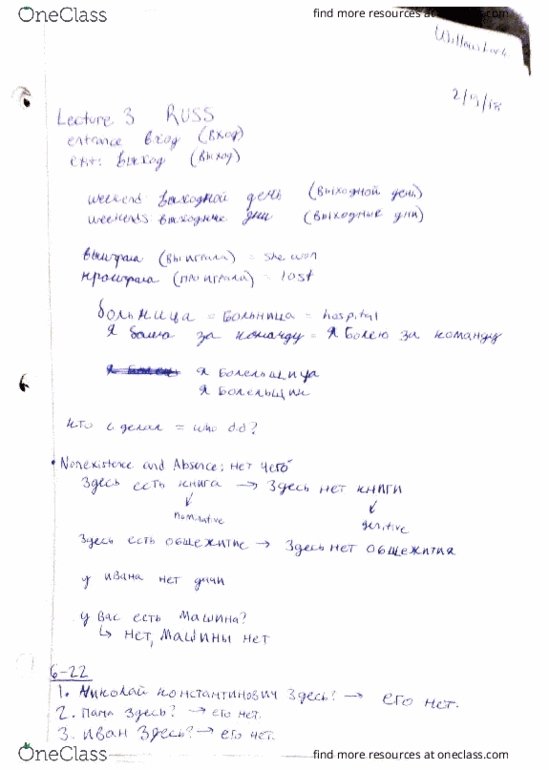 OneClass
find more resources at oneclass.com
2/9/18
Lecture 3 RUSS
entrance вход (вход)
exit: выход (выход)
weekend: выходной день (выходной день)
weekends: выходные дни (выходные дни)
выиграла (выиграла) = she won
проиграла (проиграла) = lost
больница = больница = hospital
я болею за команду = я болею за команду
я болельщица
я болельщик
Кто сделал = who did?
• Nonexistence and Absence: нет чего
Здесь есть книга → Здесь нет книги
nominative genitive
Здесь есть общежитие → Здесь нет общежития
у ивана нет дачи
у вас есть машина?
↳ нет, машины нет
6-22
1. Николай константинович здесь? → его нет.
2. Папа здесь? → его нет.
3. Иван здесь? → его нет.
OneClass
find more resources at oneclass.com